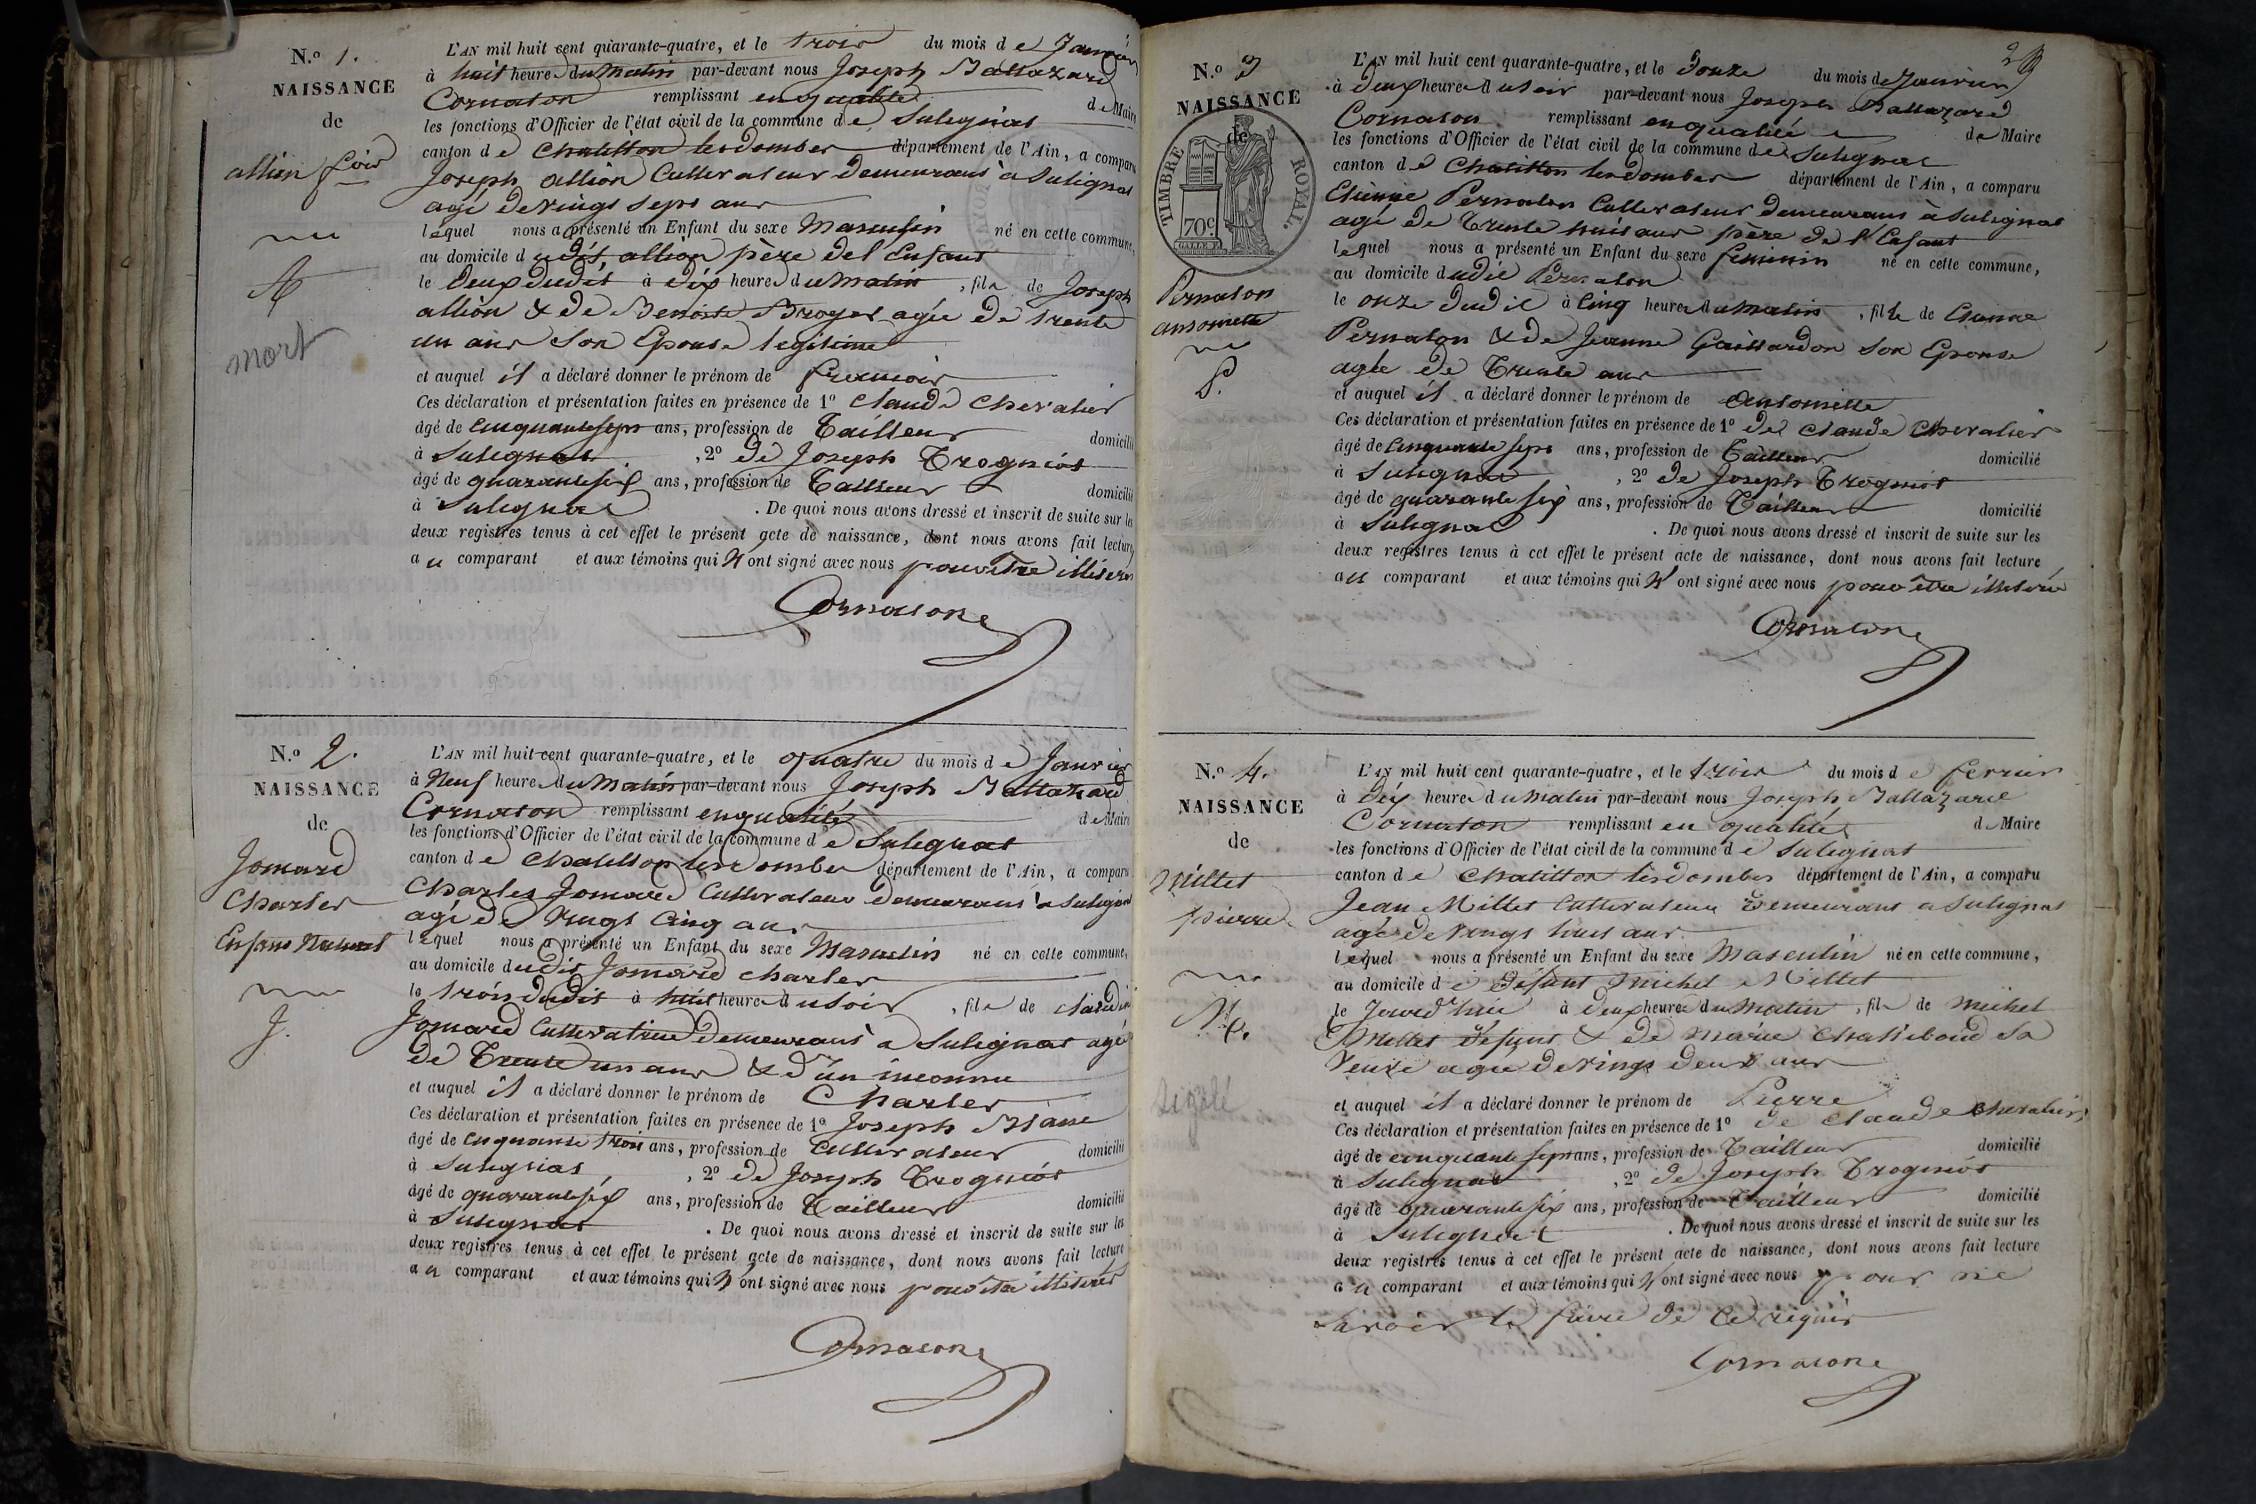 N.o 1.
NAISSANCE
de
allion
mort
L'AN mil huit cent quarante-quatre, et le trois du mois de Janvier
à huit heure du Matin par-devant nous Joseph Baltazard
Cornaton remplissant en qualité de Maire
les fonctions d'Officier de l'état civil de la commune de Sulignat
canton de Chatillon les dombes département de l'Ain, a comparu
Joseph allion Cultivateur Demeurant à Sulignat
agé de vingt sept ans
lequel nous a présenté un Enfant du sexe Masculin né en cette commune,
au domicile dudit allion père del Enfant
le Deux dudit à dix heure du matin, fils de Joseph
allion & de Benoite Broyer agée de trente
un ans Son Epouse legitime
et auquel il a déclaré donner le prénom de francois
Ces déclaration et présentation faites en présence de 1o Claude Chevalier
âgé de cinquante sept ans, profession de Tailleur domicilié
à Sulignat, 2o de Joseph Trogniot
âgé de quarante six ans, profession de Tailleur domicilié
à Sulignat. De quoi nous avons dressé et inscrit de suite sur les
deux registres tenus à cet effet le présent acte de naissance, dont nous avons fait lecture
au comparant et aux témoins qui N'ont signé avec nous pour être
Cornaton
N.o 2.
NAISSANCE
de
Jomard
Charles
Enfant Naturel
J.
L'AN mil huit cent quarante-quatre, et le quatre du mois de Janvier
à Neuf heure du Matin par-devant nous Joseph Baltazard
Cornaton remplissant en qualité de Maire
les fonctions d'Officier de l'état civil de la commune de Sulignat
canton de Chatillon les dombes département de l'Ain, a comparu
Charles Jomard Cultivateur Demeurant a Sulignat
agé de Vingt Cinq ans
lequel nous a présenté un Enfant du sexe Masculin né en cette commune,
au domicile dudit Jomard Charles
le trois dudit à huit heure du soir, fils de
Jomard Cultivatrice Demeurant a Sulignat agé
de Trente un ans & d'un inconnu
et auquel il a déclaré donner le prénom de Charles
Ces déclaration et présentation faites en présence de 1o Joseph
âgé de cinquante trois ans, profession de Cultivateur domicilié
à Sulignat, 2o de Joseph Trogniot
âgé de quarante six ans, profession de Tailleur domicilié
à Sulignat. De quoi nous avons dressé et inscrit de suite sur les
deux registres tenus à cet effet le présent acte de naissance, dont nous avons fait lecture
au comparant et aux témoins qui N'ont signé avec nous pour être
Cornaton
N.o 3
NAISSANCE
de
TIMBRE ROYAL.
70c.
Pernaton
antoinette
P.
L'AN mil huit cent quarante-quatre, et le Douze du mois de Janvier
à deux heure du soir par-devant nous Joseph Baltazard
Cornaton remplissant en qualité de Maire
les fonctions d'Officier de l'état civil de la commune de Sulignat
canton de Chatillon les dombes département de l'Ain, a comparu
Etienne Pernaton Cultivateur Demeurant à Sulignat
agé de Trente huit ans père de l'Enfant
lequel nous a présenté un Enfant du sexe feminin né en cette commune,
au domicile dudit Pernaton
le onze dudit à Cinq heure du Matin, fille de Etienne
Pernaton & de Jeanne Gaissardon Son Epouse
agée de Trente ans
et auquel il a déclaré donner le prénom de Antoinette
Ces déclaration et présentation faites en présence de 1o De Claude Chevalier
âgé de Cinquante sept ans, profession de Tailleur domicilié
à Sulignat, 2o de Joseph Trogniot
âgé de quarante six ans, profession de Tailleur domicilié
à Sulignat. De quoi nous avons dressé et inscrit de suite sur les
deux registres tenus à cet effet le présent acte de naissance, dont nous avons fait lecture
au comparant et aux témoins qui N'ont signé avec nous pour être
Cornaton
N.o 4.
NAISSANCE
de
Millet
pierre
M.
L'AN mil huit cent quarante-quatre, et le trois du mois de fevrier
à dix heure du Matin par-devant nous Joseph Baltazard
Cornaton remplissant en qualité de Maire
les fonctions d'Officier de l'état civil de la commune de Sulignat
canton de Chatillon les dombes département de l'Ain, a comparu
Jean Millet Cultivateur Demeurant a Sulignat
agé de Vingt huit ans
lequel nous a présenté un Enfant du sexe Masculin né en cette commune,
au domicile de Défunt Michel Millet
le Jourd'hui à deux heure du Matin, fils de Michel
Millet Défunt & de Marie Sa
Veuve agée de vingt deux ans
et auquel il a déclaré donner le prénom de Pierre
Ces déclaration et présentation faites en présence de 1o de Claude Chevalier
âgé de cinquante sept ans, profession de Tailleur domicilié
à Sulignat, 2o de Joseph Trogniot
âgé de quarante six ans, profession de Tailleur domicilié
à Sulignat. De quoi nous avons dressé et inscrit de suite sur les
deux registres tenus à cet effet le présent acte de naissance, dont nous avons fait lecture
au comparant et aux témoins qui N'ont signé avec nous pour ne
savoir le faire de Ce requis
Cornaton